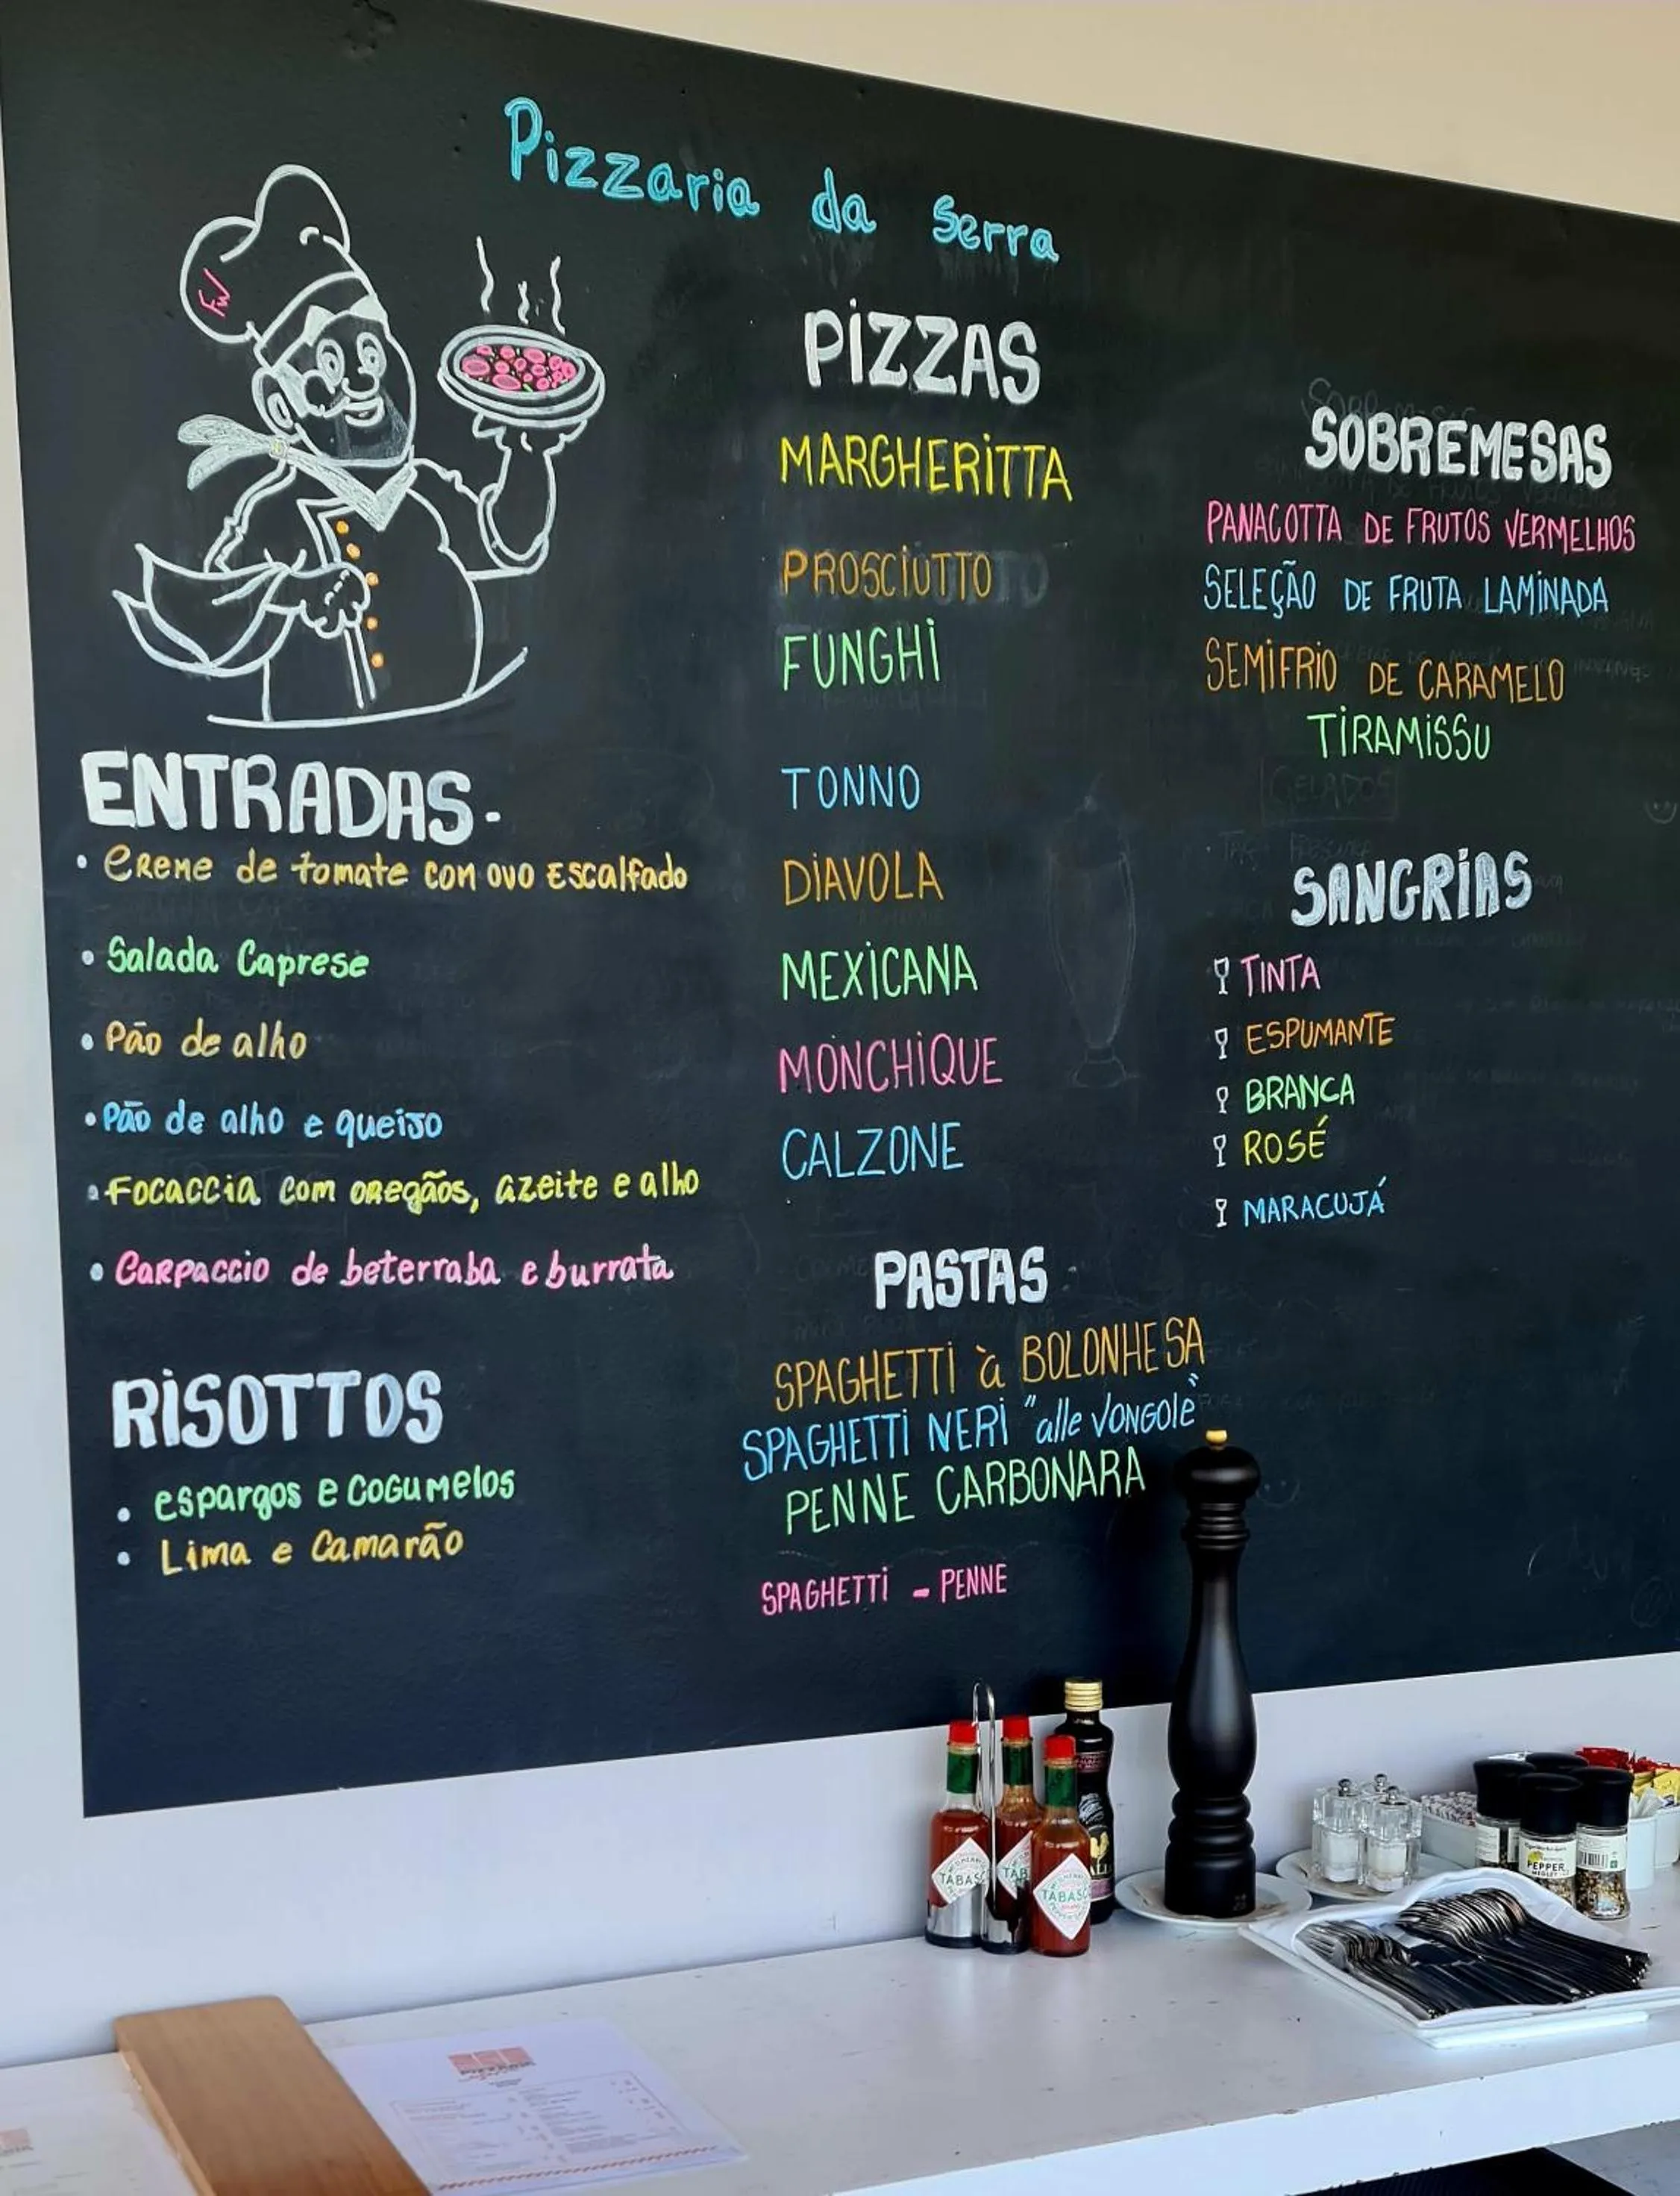 Pizzaria da Serra
FW
ENTRADAS.
• Creme de tomate con ovo Escalfado
• Salada Caprese
• Pão de alho
• Pão de alho e queijo
• Focaccia com oregãos, azeite e alho
• Carpaccio de beterraba e burrata
RISOTTOS
• espargos e cogumelos
• Lima e Camarão
PIZZAS
MARGHERITTA
PROSCIUTTO
FUNGHI
TONNO
DIAVOLA
MEXICANA
MONCHIQUE
CALZONE
PASTAS
SPAGHETTI à BOLONHESA
SPAGHETTI NERI "alle vongole"
PENNE CARBONARA
SPAGHETTI - PENNE
SOBREMESAS
PANACOTTA DE FRUTOS VERMELHOS
SELEÇÃO DE FRUTA LAMINADA
SEMIFRIO DE CARAMELO
TIRAMISSU
GELADOS
SANGRIAS
TINTA
ESPUMANTE
BRANCA
ROSÉ
MARACUJÁ
TABASCO
PEPPER